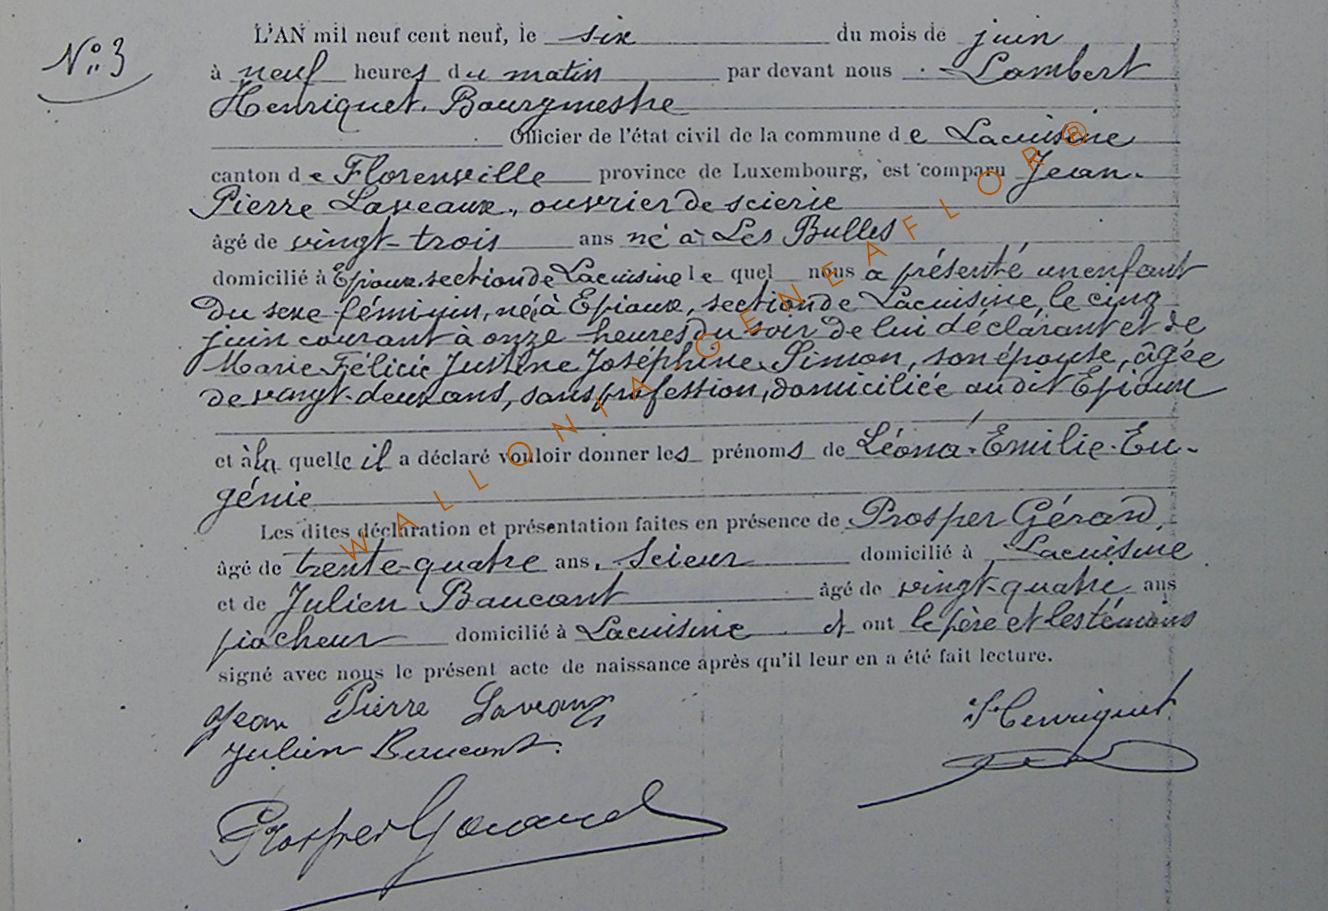 N° 3
L'AN mil neuf cent neuf, le six du mois de juin
à neuf heures du matin par devant nous Lambert
Henriquet. Bourgmestre
Officier de l'état civil de la commune de Lacuisine
canton de Florenville province de Luxembourg, est comparu Jean-
Pierre Laveaux, ouvrier de scierie
âgé de vingt-trois ans né à Les Bulles
domicilié à Epioux, section de Lacuisine lequel nous a présenté un enfant
du sexe féminin, né à Epioux, section de Lacuisine, le cinq
juin courant à onze heures du soir de lui déclarant et de
Marie Félicie Justine Joséphine Simon, son épouse, âgée
de vingt-deux ans, sans profession, domiciliée audit Epioux
et à laquelle il a déclaré vouloir donner les prénoms de Léona-Emilie-Eu-
génie
Les dites déclaration et présentation faites en présence de Prosper Gérard,
âgé de trente-quatre ans, scieur domicilié à Lacuisine
et de Julien Baucant âgé de vingt-quatre ans
piocheur domicilié à Lacuisine et ont le père et les témoins
signé avec nous le présent acte de naissance après qu'il leur en a été fait lecture.
Jean Pierre Laveaux
Henriquet
Julien Baucant.
Prosper Gérard
WALLONIA GENEAFLOR®